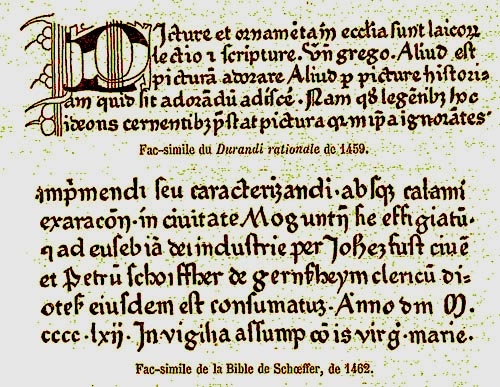 Picture et ornamēta in ecclīa sunt laicorꝝ
lectio ⁊ scripture. Vn̄ grego. Aliud est
picturā adorare Aliud ꝑ picture histori-
am quid sit adorādū adiscē. Nam qd̓ legētibꝫ
ideons cernentibꝫ p̄stat pictura ignorātes
Fac-simile du Durandi rationale de 1459.
imp̄mendi seu caracterizandi·absqꝫ calami
exaracōn̄·in ciuitate Moguntn̄ sic effigiatū·
⁊ ad eusebiā dei industrie per Johēꝫ fust ciuē
et Petrū schoiffher de gernsheym clericū di-
otesꝭ eiusdem est consumatuꝫ·Anno dn̄i M·
cccc·lxij·In vigilia assumpcōis virg̓·marie·
Fac-simile de la Bible de Schœffer, de 1462.